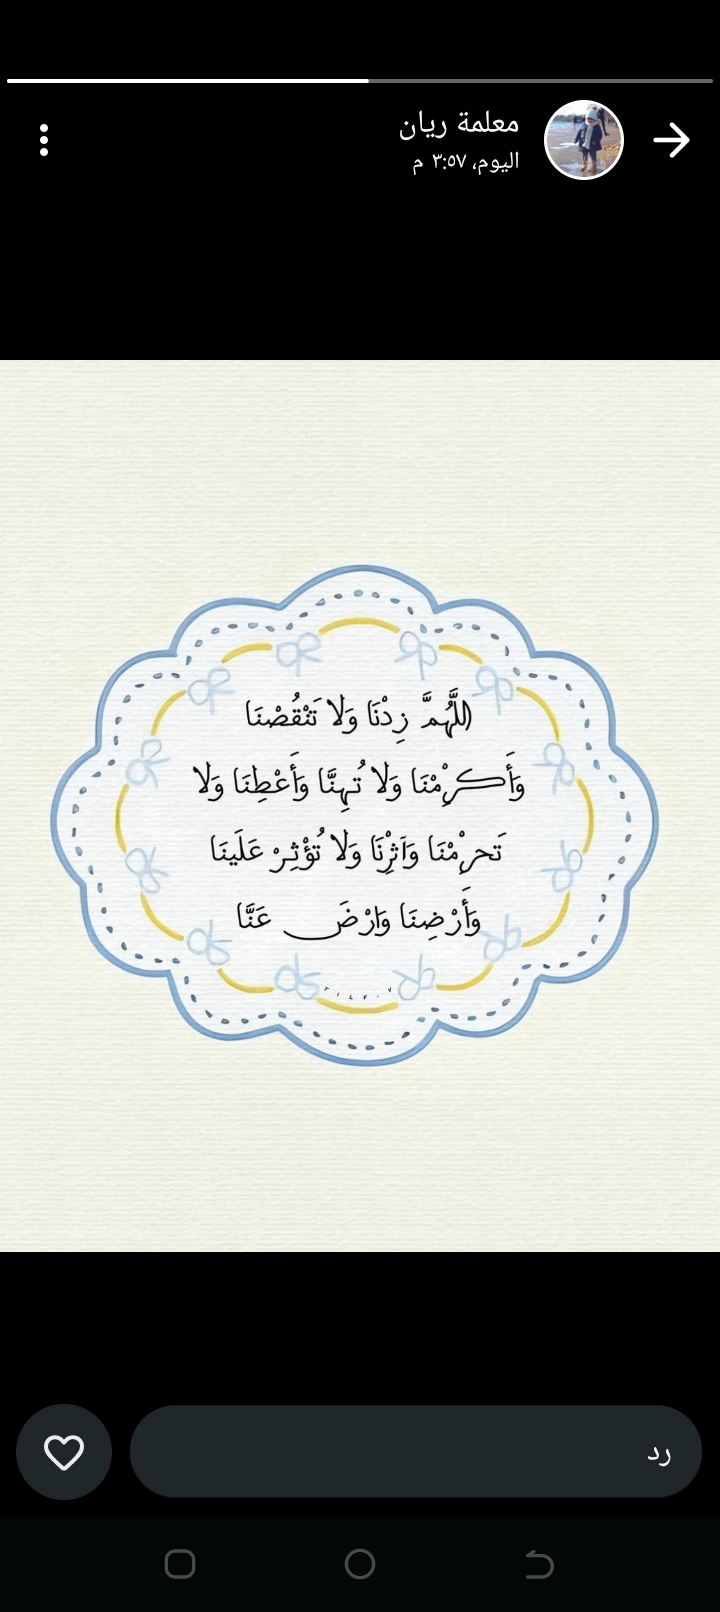 معلمة ريان
اليوم، ٣:٥٧ م
اللَّهُمَّ زِدْنَا وَلَا تَنْقُصْنَا
وَأَكرِمْنَا وَلَا تُهِنَّا وَأَعْطِنَا وَلَا
تَحرِمْنَا وَآثِرْنَا وَلَا تُؤْثِرْ عَلَينَا
وَأَرْضِنَا وَارْضَ عَنَّا
رد